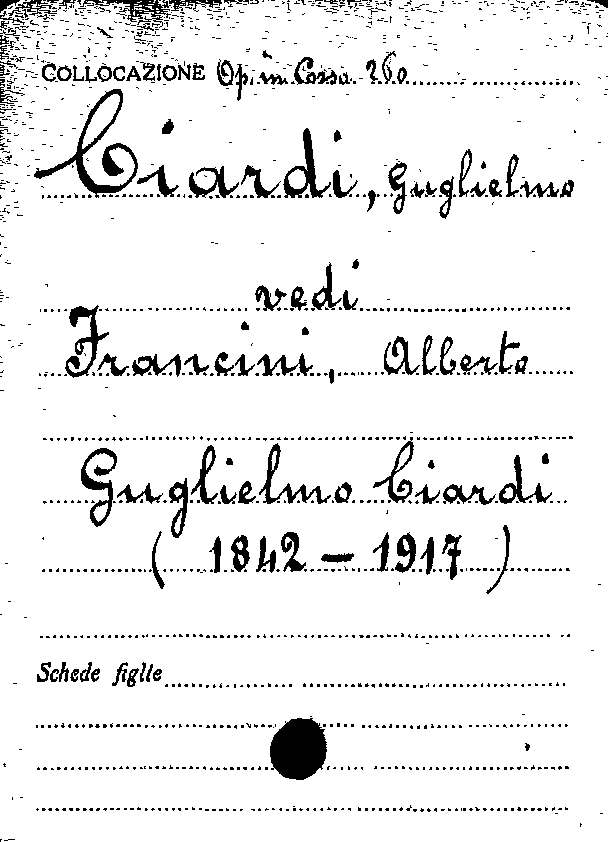 COLLOCAZIONE Op. in Corso 260
Ciardi, Guglielmo
vedi
Francini, Alberto
Guglielmo Ciardi
( 1842 - 1917 )
Schede figlie